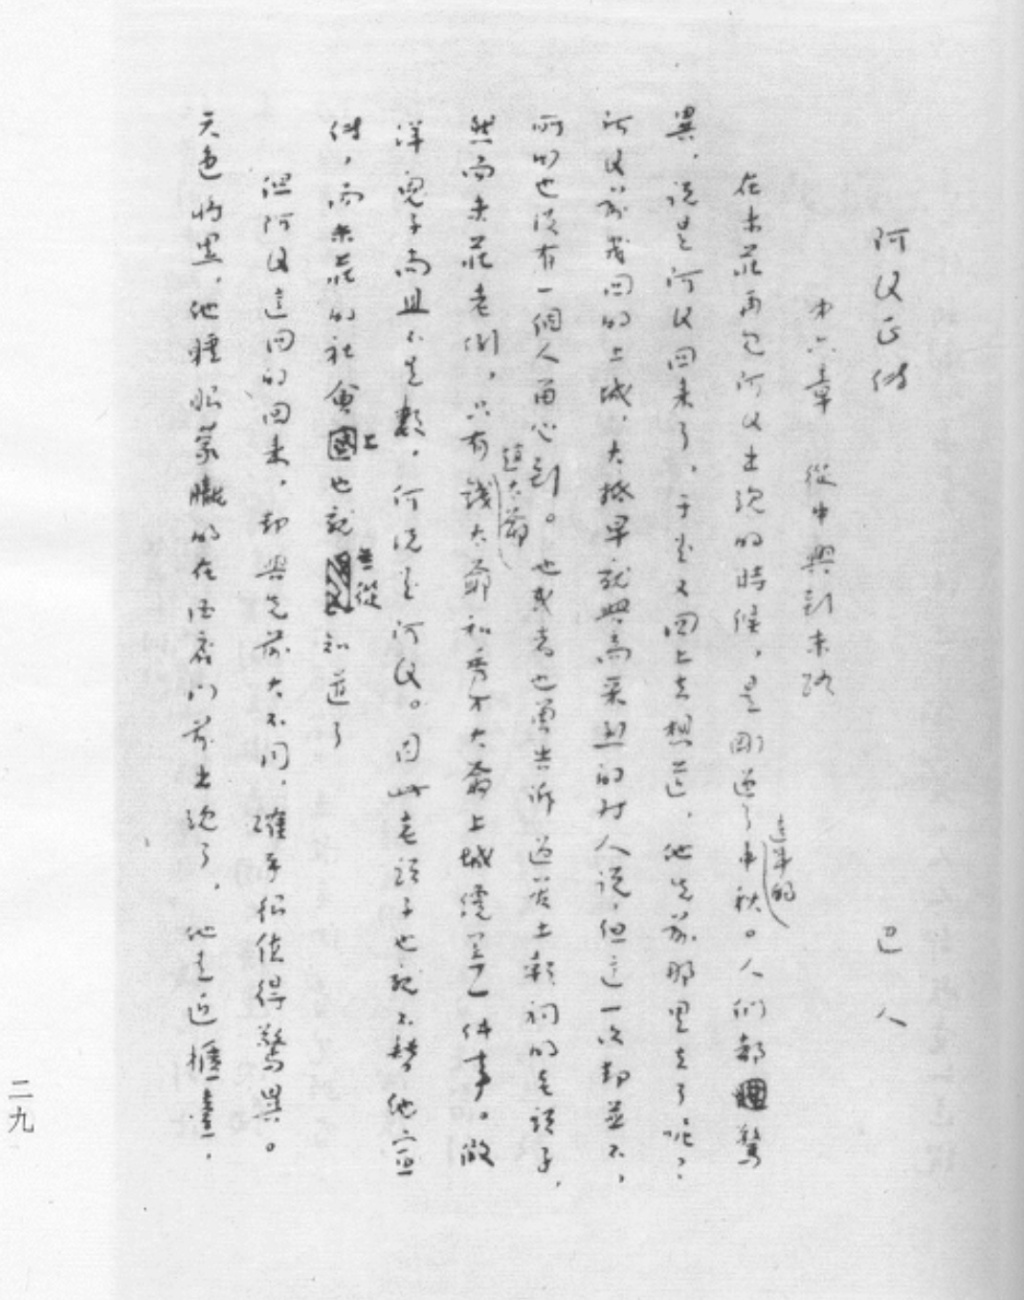 阿Q正傳
巴人
第六章 從中興到末路
在未莊再見阿Q出現的時候，是剛過了這年的中秋。人們都驚
異，說是阿Q回來了，于是又回上去想道，他先前那里去了呢？
阿Q前幾回的上城，大抵早就興高采烈的對人說，但這一次卻並不，
所以也沒有一個人留心到。他或者也曾告訴過管土穀祠的老頭子，
然而未莊老例，只有趙太爺錢太爺和秀才大爺上城纔算一件事。假
洋鬼子尚且不足數，何況是阿Q。因此老頭子也就不替他宣
傳，而未莊的社會上也就無從知道了
但阿Q這回的回來，卻與先前大不同，確乎很值得驚異。
天色將黑，他睡眼蒙朧的在酒店門前出現了，他走近櫃臺，
二九